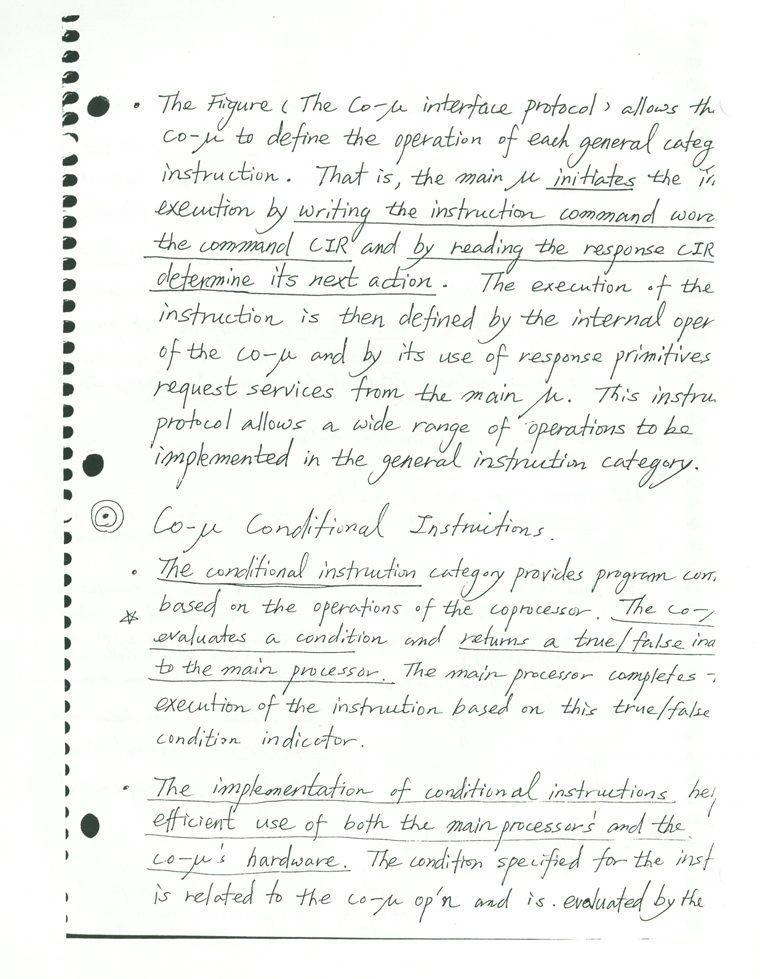 • The Figure (The Co-μ interface protocol) allows th
co-μ to define the operation of each general categ
instruction. That is, the main μ initiates the in
execution by writing the instruction command word
the command CIR and by reading the response CIR
determine its next action. The execution of the
instruction is then defined by the internal oper
of the co-μ and by its use of response primitives
request services from the main μ. This instru
protocol allows a wide range of operations to be
implemented in the general instruction category.
Co-μ Conditional Instructions.
• The conditional instruction category provides program con
based on the operations of the coprocessor. The co-
evaluates a condition and returns a true/false ind
to the main processor. The main processor completes
execution of the instruction based on this true/false
condition indicator.
• The implementation of conditional instructions hel
efficient use of both the main processor's and the
co-μ's hardware. The condition specified for the inst
is related to the co-μ op'n and is. evaluated by the